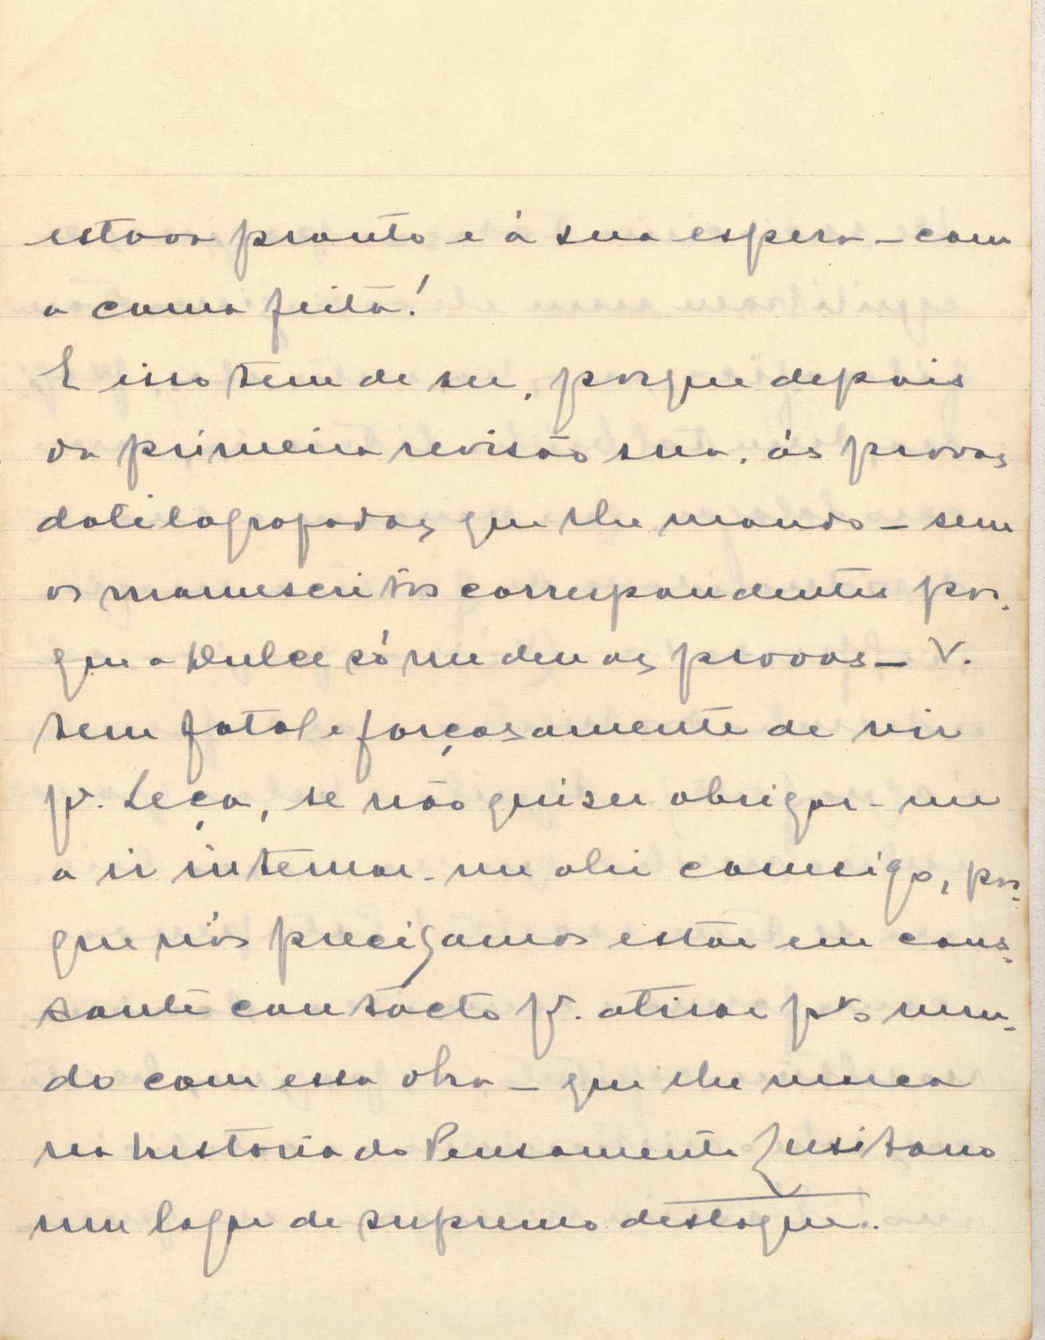 estava pronto e á sua espera – com
a cama feita!
E isso tem de ser, porque depois
da primeira revisão sua, ás provas
datilografadas que lhe mando – sem
os manuscritos correspondentes por-
que a Dulce só me deu as provas – V.
tem fatal e forçosamente de vir
pª. Leça, se não quiser obrigar-me
a ir internar-me ahi comsigo, por-
que nós precisamos estar em cons-
tante contacto pª. atirar pª o mun-
do com essa obra – que lhe marca
na historia do Pensamento Lusitano
um logar de supremo destaque.